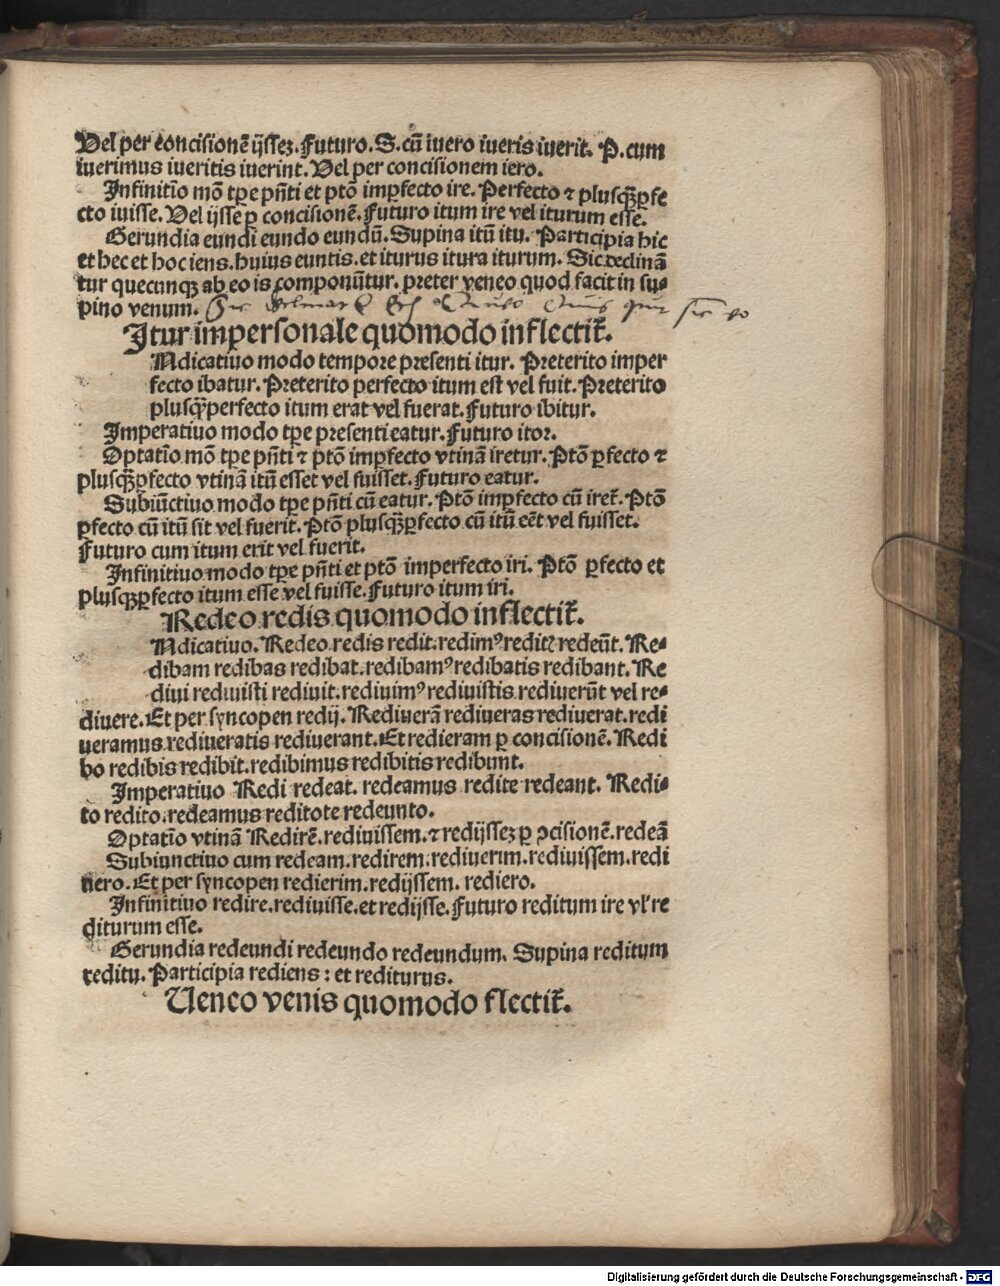 Uel per concisionē ijssez. Futuro. S. cū iuero iueris iuerit. P. cum
iuerimus iueritis iuerint. Uel per concisionem iero.
Infinitio mō tꝑe pñti et ptō imꝑfecto ire. Perfecto ⁊ plusqꝫꝑfe
cto iuisse. Uel ijsse ꝑ concisionē. Futuro itum ire vel iturum esse.
Gerundia eundi eundo eundū. Supina itū itu. Participia hic
et hec et hoc iens. huius euntis. et iturus itura iturum. Sic declinā
tur quecunqꝫ ab eo is componūtur. preter veneo quod facit in su⸗
pino venum.
Itur impersonale quomodo inflectit᷑.
Ndicatiuo modo tempore presenti itur. Preterito imper
fecto ibatur. Preterito perfecto itum est vel fuit. Preterito
plusqꝫperfecto itum erat vel fuerat. Futuro ibitur.
Imperatiuo modo tꝑe presenti eatur. Futuro itor.
Optatio mō tꝑe pñti ⁊ ptō imꝑfecto vtinā iretur. Ptō ꝑfecto ⁊
plusqꝫꝑfecto vtinā itū esset vel fuisset. Futuro eatur.
Subiūctiuo modo tꝑe pñti cū eatur. Ptō imꝑfecto cū iret᷑. Ptō
ꝑfecto cū itū sit vel fuerit. Ptō plusqꝫꝑfecto cū itū eēt vel fuisset.
Futuro cum itum erit vel fuerit.
Infinitiuo modo tꝑe pñti et ptō imperfecto iri. Ptō ꝑfecto et
plusqꝫꝑfecto itum esse vel fuisse. Futuro itum iri.
Redeo redis quomodo inflectit᷑.
Ndicatiuo. Redeo redis redit. redimꝰ reditꝭ redeūt. Re⸗
dibam redibas redibat. redibamꝰ redibatis redibant. Re
diui rediuisti rediuit. rediuimꝰ rediuistis rediuerūt vel re⸗
diuere. Et per syncopen redij. Rediuerā rediueras rediuerat. redi
ueramus rediueratis rediuerant. Et redieram ꝑ concisionē. Redi
bo redibis redibit. redibimus redibitis redibunt.
Imperatiuo Redi redeat. redeamus redite redeant. Redi⸗
to redito. redeamus reditote redeunto.
Optatio vtinā Redirē. rediuissem. ⁊ redijssez ꝑ ↄcisionē. redeā
Subiunctiuo cum redeam. redirem. rediuerim. rediuissem. redi
uero. Et per syncopen redierim. redijssem. rediero.
Infinitiuo redire. rediuisse. et redijsse. Futuro reditum ire vl' re
diturum esse.
Gerundia redeundi redeundo redeundum. Supina reditum
reditu. Participia rediens : et rediturus.
Ueneo venis quomodo flectit᷑.
Digitalisierung gefördert durch die Deutsche Forschungsgemeinschaft - DFG